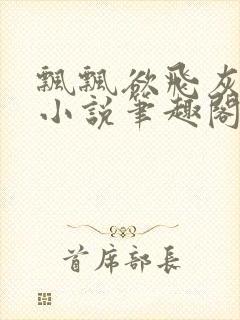 飄飄欲飛灰
小說筆趣閣
首席部長